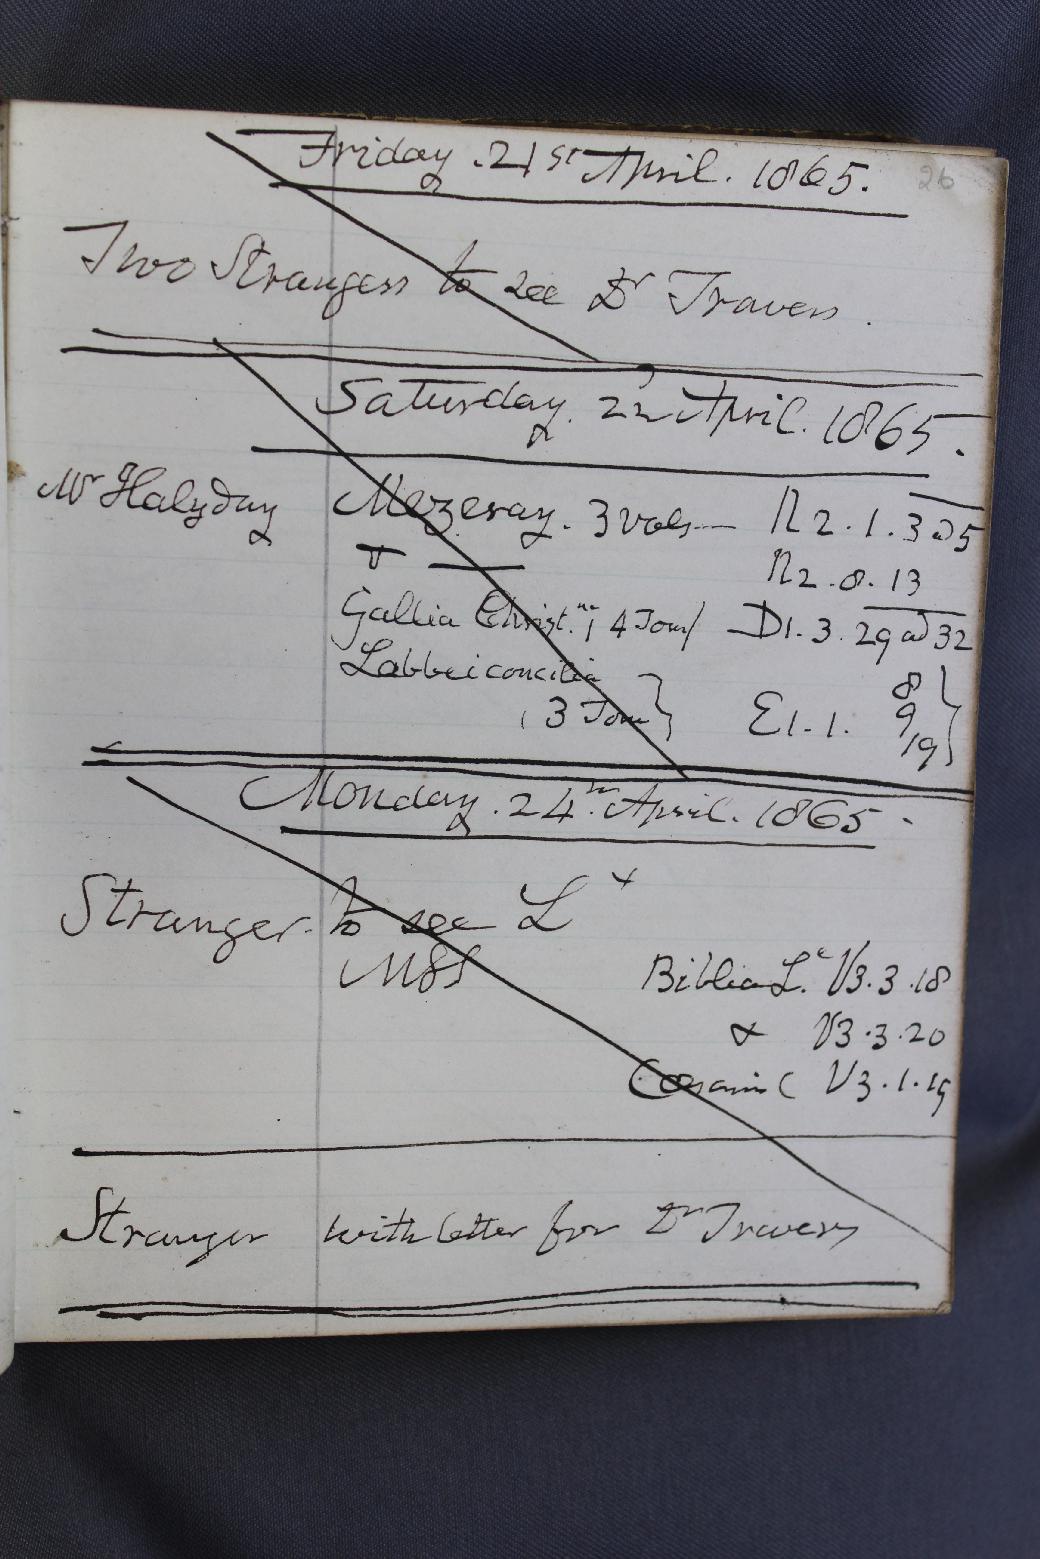 26
Friday. 21st April. 1865.
Two Strangers to see Dr Travers.
Saturday. 22 April. 1865.
Mr Halyday Mezeray. 3 vols — N 2. 1. 3 ad 5
& — N 2. 8. 13
Gallia Christ. 4 Tom / D1. 3. 29 ad 32
Labbei concilia
(3 Tom } E1. 1. 8
9
19 }
Monday. 24th April. 1865.
Stranger to see L
MSS
Biblia L. V3. 3. 18
& V3. 3. 20
V3. 1. 19
Stranger with letter for Dr Travers